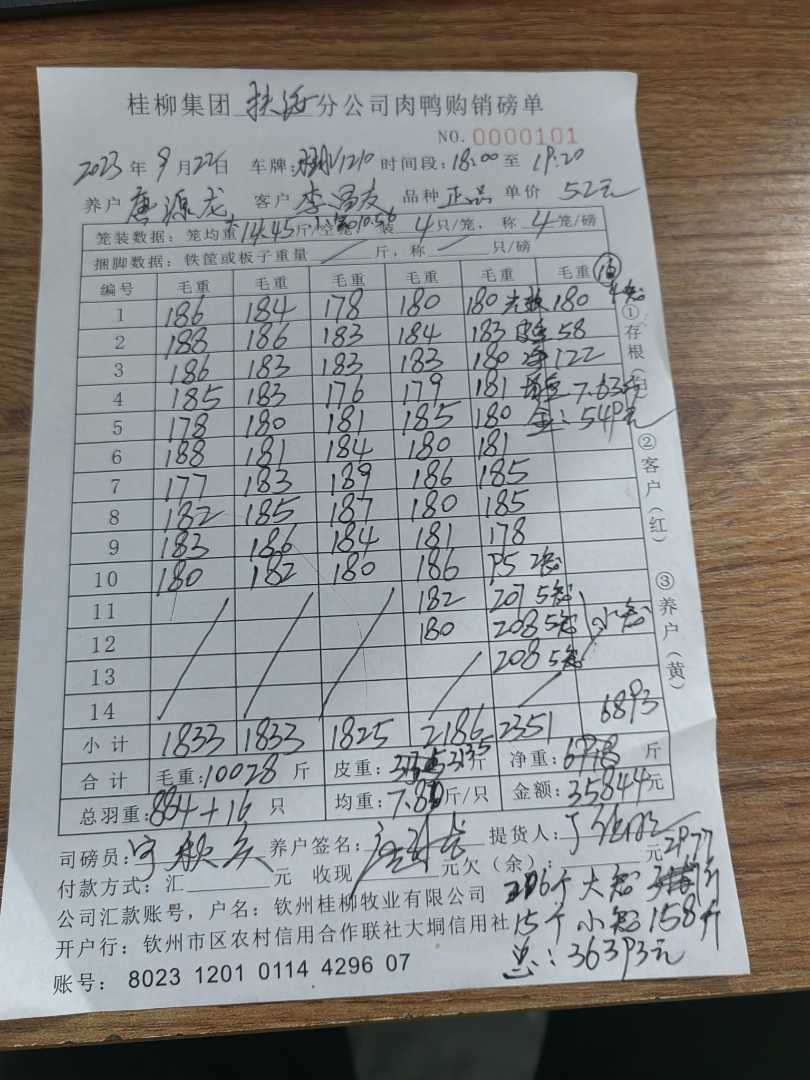 桂柳集团 扶绥 分公司肉鸭购销磅单
NO. 0000101
2023 年 9 月 22 日 车牌: 1210 时间段: 18:00 至 19:20
养户 唐源龙 客户 李昌友 品种 正品 单价 5.2元
笼装数据: 笼均重 大14.45 斤/空笼, 小10.56 装 4 只/笼, 称 4 笼/磅
捆脚数据: 铁筐或板子重量 / 斤, 称 / 只/磅
编号 毛重 毛重 毛重 毛重 毛重 毛重
1 186 184 178 180 180 180
2 188 186 183 184 183 皮重 58
3 186 183 183 183 180 净 122
4 185 183 176 179 181 均重 7.63斤
5 178 180 181 185 180 金: 549元
6 188 181 184 180 181
7 177 183 189 186 185
8 182 185 187 180 185
9 183 186 184 181 178
10 180 182 180 186 95 2笼
11 182 207 5笼
12 180 208 5笼 小笼
13 208 5笼
14
小计 1833 1833 1825 2186 2351 6893
合计 毛重: 10028 斤 皮重: 3135 斤 净重: 斤
总羽重: 884+16 只 均重: 斤/只 金额: 35844 元
司磅员: 养户签名: 提货人:
付款方式: 汇 元 收现 元欠(余): 元
公司汇款账号, 户名: 钦州桂柳牧业有限公司
开户行: 钦州市区农村信用合作联社大垌信用社
账号: 8023 1201 0114 4296 07
206个 大笼 2977斤
15个 小笼 158斤
总: 36393元
①存根(白)
②客户(红)
③养户(黄)